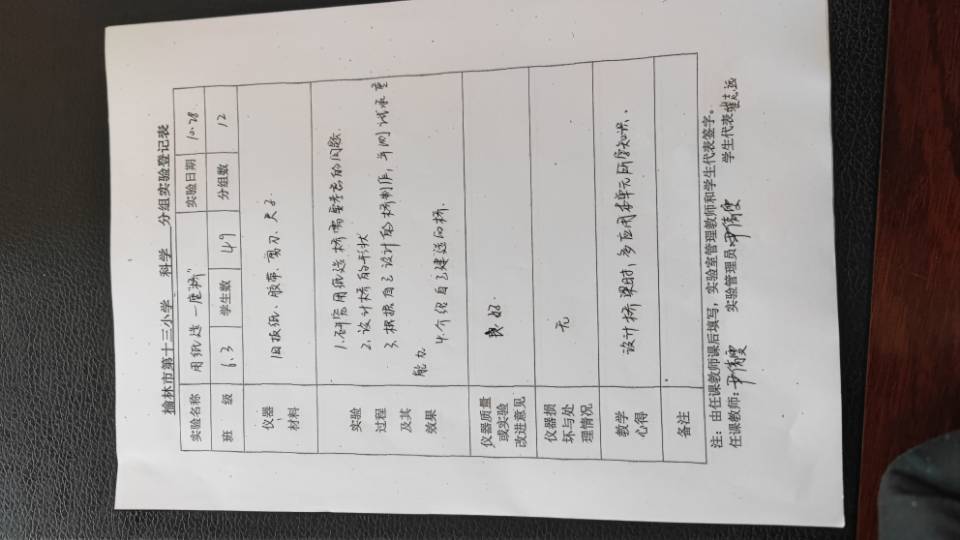 榆林市第十三小学 科学 分组实验登记表
实验名称 用纸造一座桥" 实验日期 10.28
班 级 6.3 学生数 49 分组数 12
仪器
材料
旧报纸、胶带、剪刀、尺子
实验
过程
及其
效果
1.研究用纸造桥需要考虑的问题.
2.设计桥的形状
3.根据自己设计的桥制作,并测试承重
能力
4.介绍自己建造的桥.
仪器质量
或实验
改进意见
良好
仪器损
坏与处
理情况
无
教学
心得
设计桥梁时,多应用本单元所学知识.
备注
注:由任课教师课后填写,实验室管理教师和学生代表签字。
任课教师: 实验管理员 学生代表